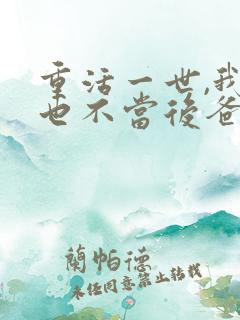 重活一世,我
也不當後爸
蘭帕德
未经同意禁止转载